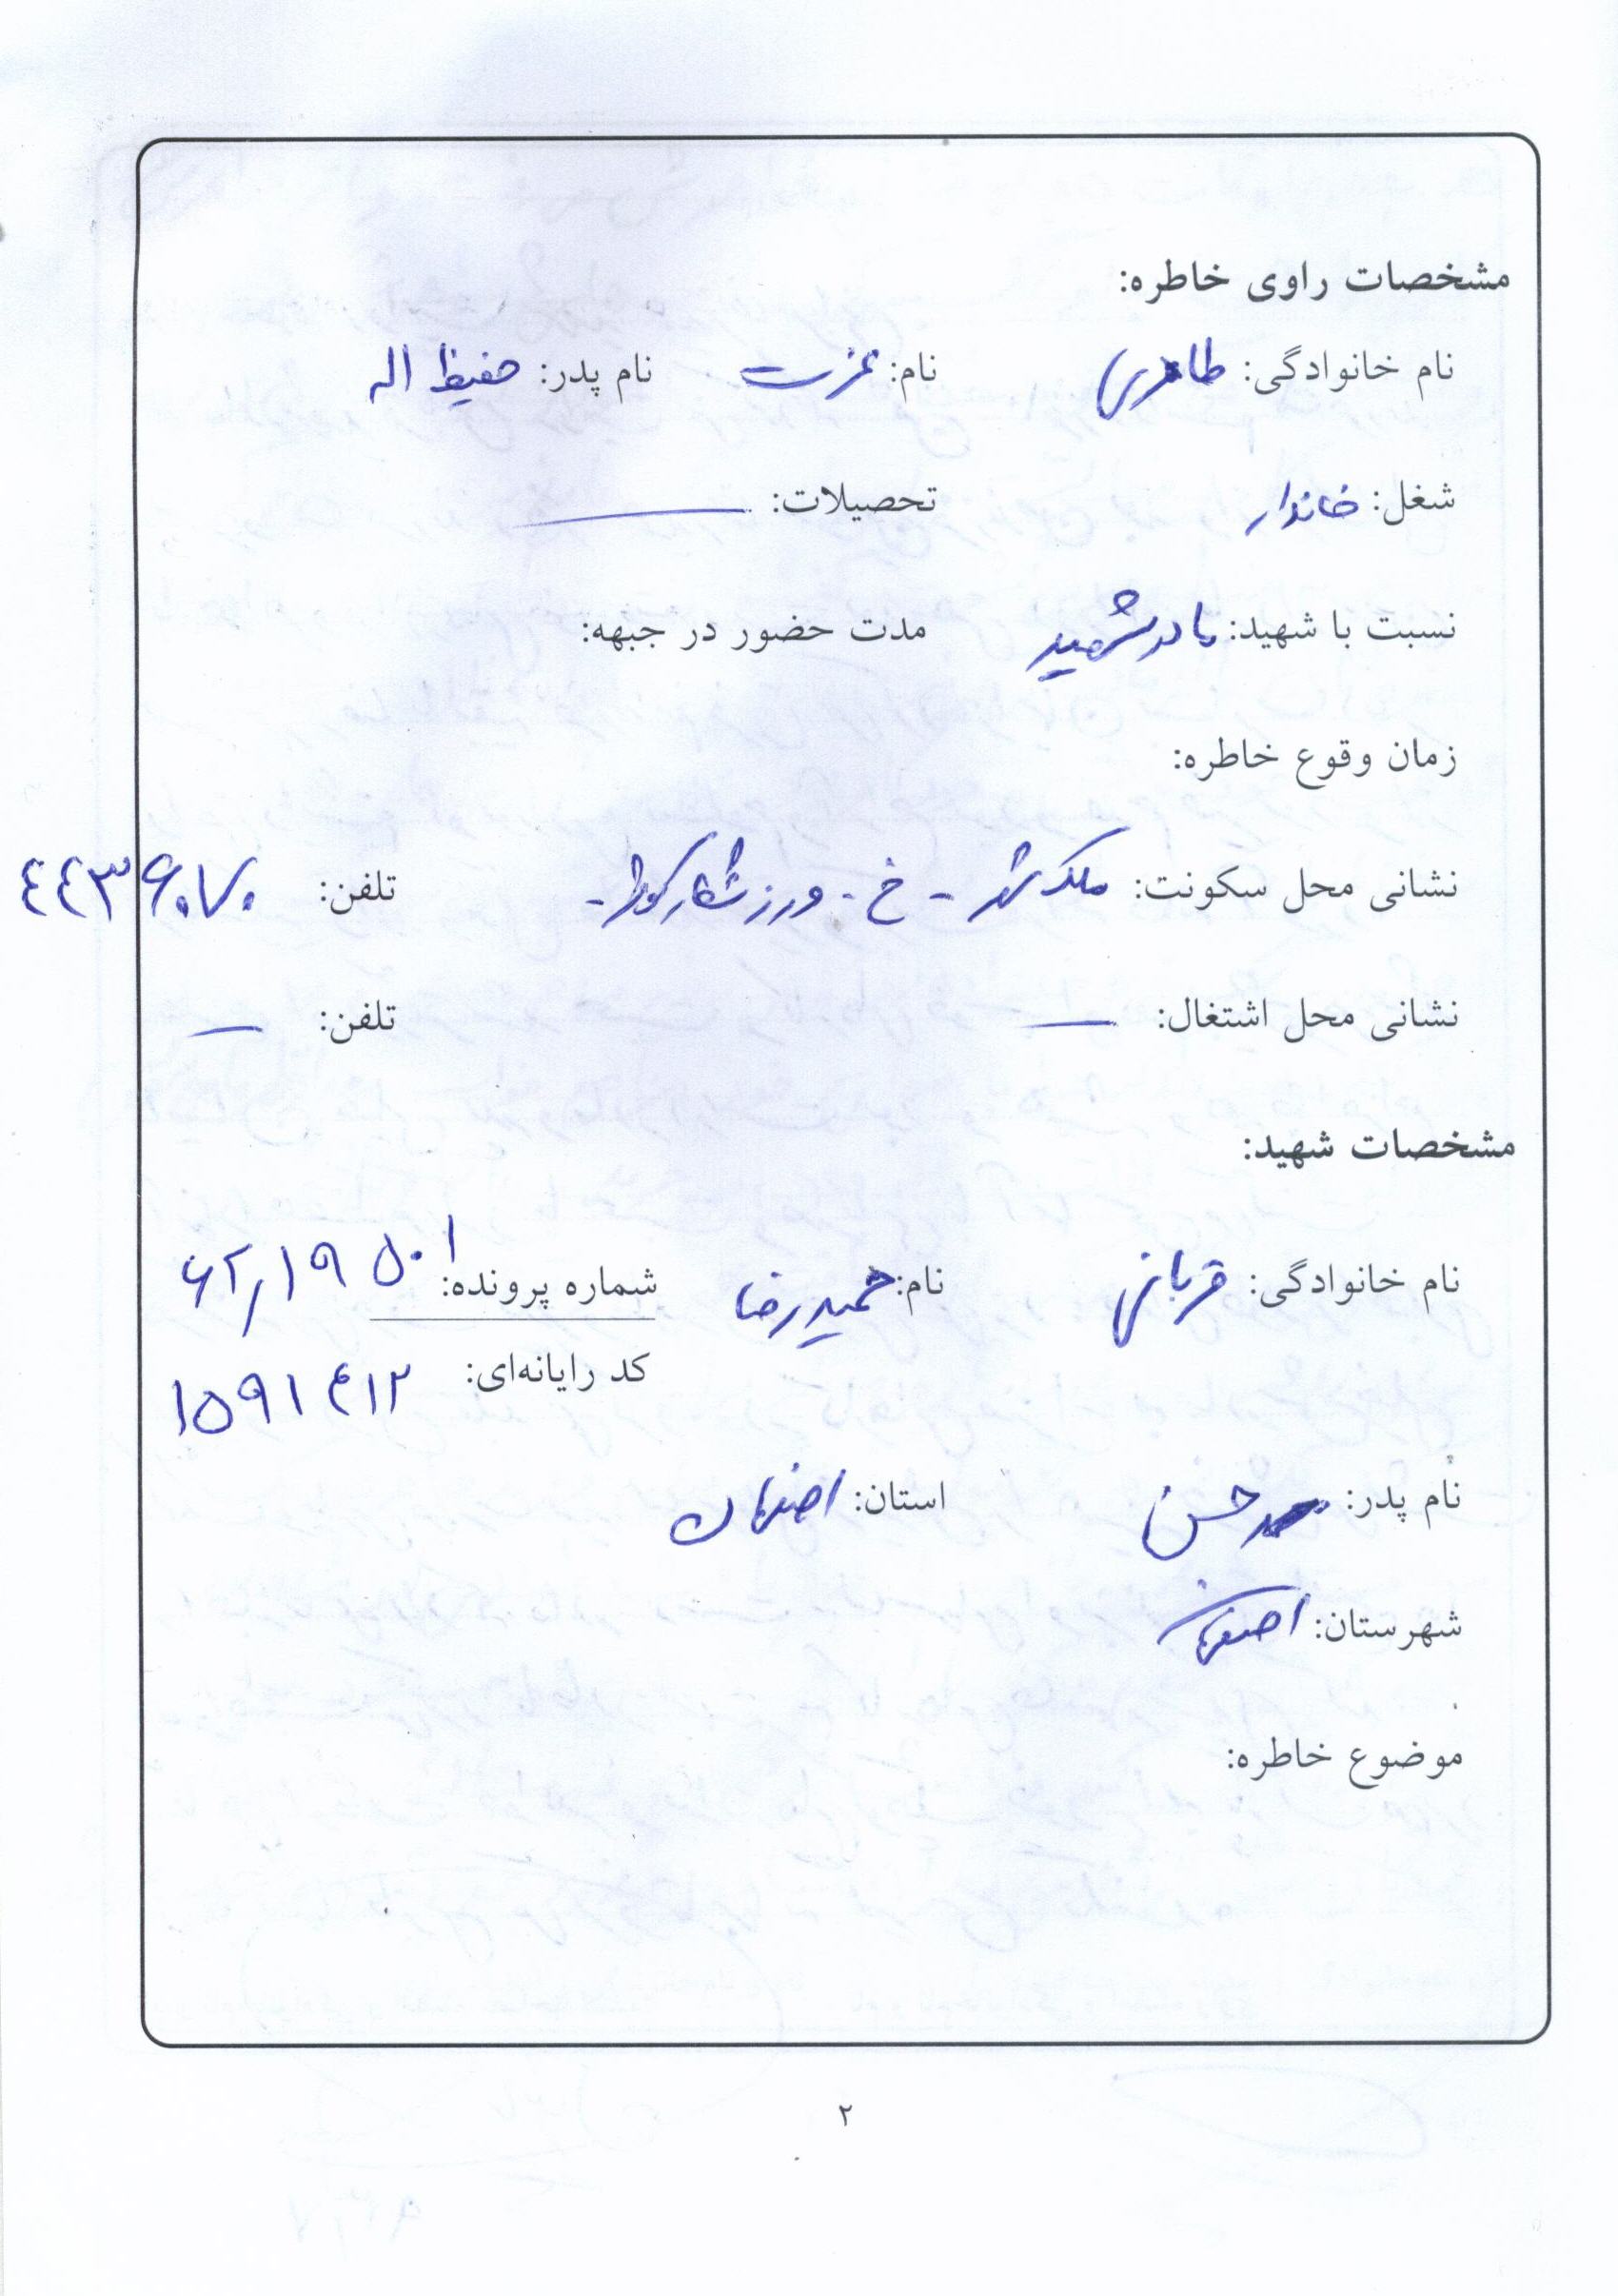 مشخصات راوی خاطره:
نام خانوادگی: طاهری نام: عزت نام پدر: حفیظ اله
شغل: خاندار تحصیلات:
نسبت با شهید: مادر شهید مدت حضور در جبهه:
زمان وقوع خاطره:
نشانی محل سکونت: ملک شهر - خ - ورزشکار تلفن: ٤٤٣۶۰۷۰
نشانی محل اشتغال: — تلفن: —
مشخصات شهید:
نام خانوادگی: قربانی نام: حمیدرضا شماره پرونده: ۶۲/۱۹۵۰۱
کد رایانه‌ای: ۱۵۹۱٤۱۲
نام پدر: حسن استان: اصفهان
شهرستان: اصفهان
موضوع خاطره:
۲